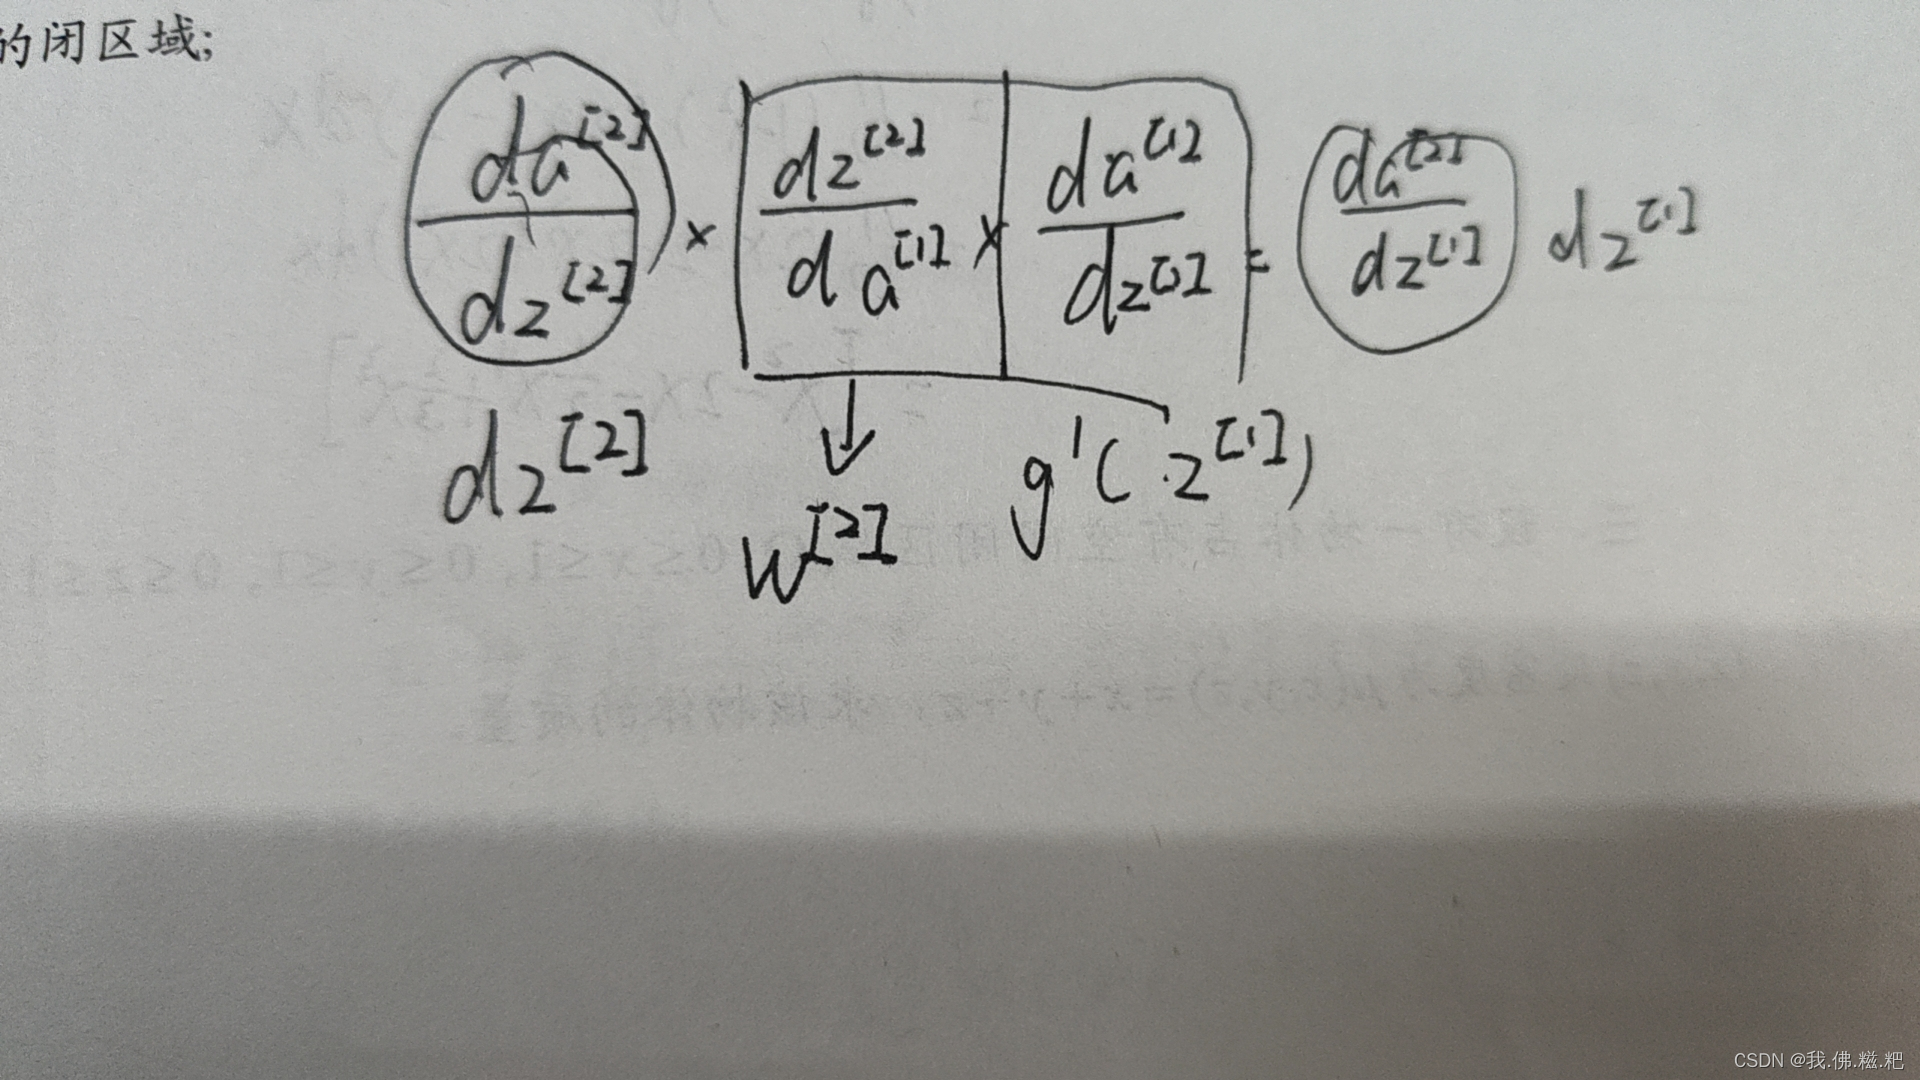 的闭区域;
da^[2]/dz^[2] × dz^[2]/da^[1] × da^[1]/dz^[1] = da^[2]/dz^[1] dz^[1]
dz^[2] ↓ g'(z^[1])
w^[2]
CSDN @我.佛.糍.粑